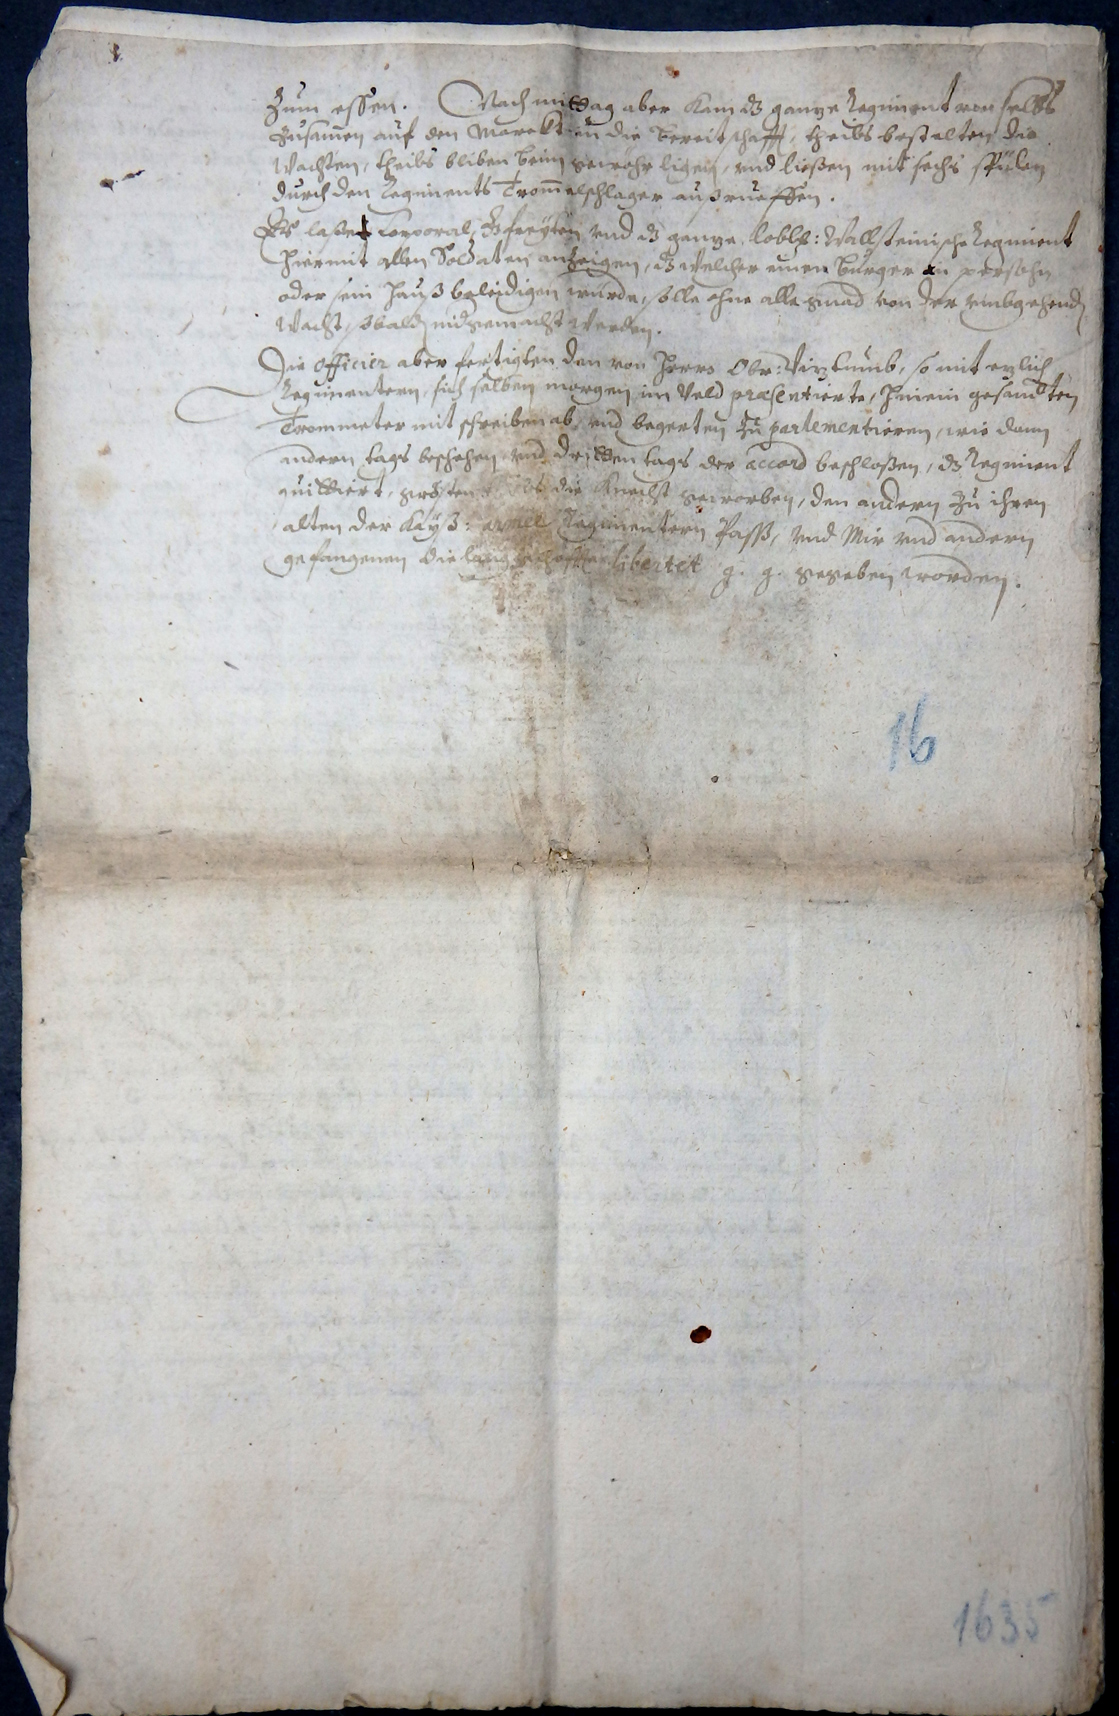 Zum essen. Nachmittag aber kam dz gantze Regiment von selbs
zusamen auf den Marckt in die bereitschafft, theils bestalten die
Wachten, theils bliben beim gewöhr ligen, vnd ließen mit sechs spilen
durch den Regiments Trommelschlager außrueffen.
Es laßet Corporal, Gefreyten vnd dz gantze lobl: Wallsteinische Regiment
hiermit allen Soldaten anzeigen, dz welcher einen burger in persohn
oder sein hauß beleidigen wurde, solle ohne alle gnad von der umbgehend
Wacht, sobald nidergemacht werden.
Die Officier aber fertigten den von Herrn Obr: Vizthumb, so mit etlich
Regimentern, sich selben morgen im Veld præsentierte, hinein gesandten
Trommeter mit schreiben ab, vnd begerten zu parlementieren, wie dann
andern tags beschehen, vnd dritten tags der accord beschloßen, dz Regiment
quittiert, die Knecht geworben, den andern zu ihren
alten der Kayß: armee Regimentern Paß, vnd Mir vnd andern
gefangenen die lang libertet g. g. gegeben worden.
16
1635